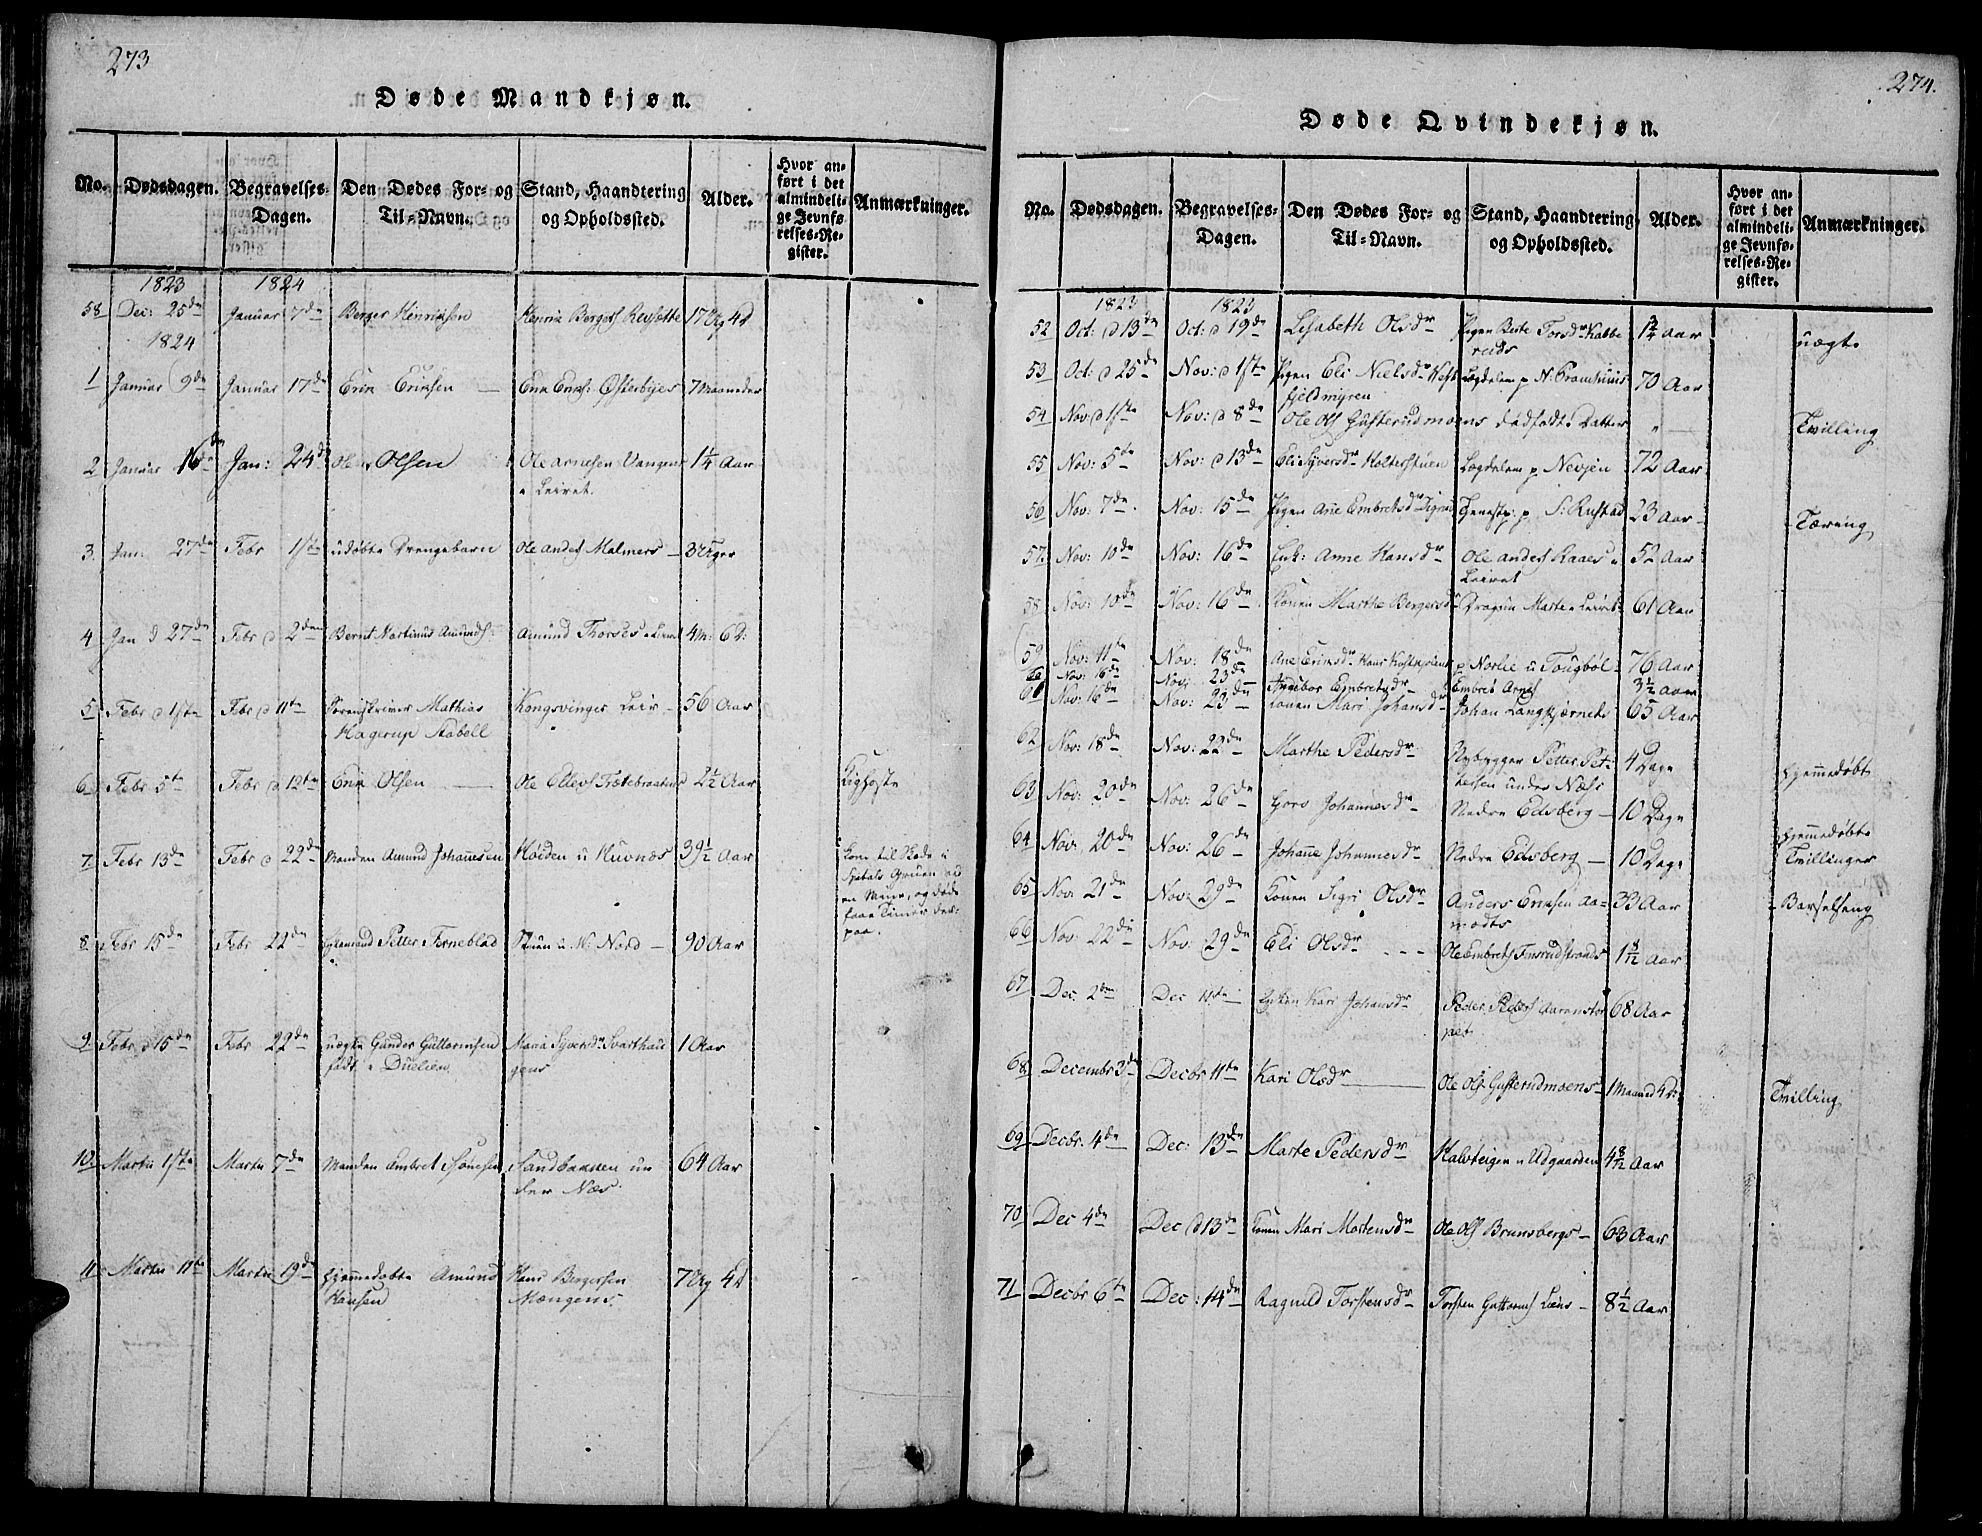 273
Døde Mandkjøn.
No. Dødsdagen. Begravelses-Dagen. Den Dødes For- og Til-Navn. Stand, Haandtering og Opholdssted. Alder. Hvor anført i det almindelige Jevnførelses-Register. Anmærkninger.
1823 1824
58 Dec: 25de Januar 7de Berger Henriksen Henrik Bergers 17 Ug 4d
1824
1 Januar 9de Januar 17de Erik Eriksen Erik Eriks: Østerbyes 7 Maaneder
2 Januar 16de Jan: 24de Ole Olsen Ole Arnesen Vangen 1 1/4 Aar
v Leiret.
3. Jan: 27de Febr 1ste udøbte Drengebarn Ole Anders Malmers 3 Uger
4 Jan d 27de Febr d 2den Bernt Martinus Amunds: Amund Thorses v Leiret 4 M: 6 d:
5 Febr d 1ste Febr d 11te Sorenskriver Mathias Kongsvinger Leir 56 Aar
Hagerup Stabell
6 Febr 5te Febr d 12te Erik Olsen Ole Ellevs 2 1/2 Aar Kighoste
7 Febr 13de Febr d 22de Manden Amund Johannesen Høiden u Huvnæs 39 1/2 Aar Kom til Skade i
Spetals Gruen
en Mine, og døde
faae Timer der-
paa.
8 Febr 15de Febr 22de Petter Ferneblad Stuen u. N: Nord 90 Aar
9 Febr d 15de Febr 22de uægte Gunder Guttormsen Maria Syversdr Svarthau 1 Aar
født v Duelien gens
10 Martii 1ste Martii 7de Manden Embret Sønesen Sandbakken un 64 Aar
der Næs.
11 Martii 11te Martii 19de hjemmedøbte Amund Hans Bergersen 7 Ug 4d
Hansen Mængens.
274.
Døde Qvindekjøn.
No. Dødsdagen. Begravelses-Dagen. Den Dødes For- og Til-Navn. Stand, Haandtering og Opholdssted. Alder. Hvor anført i det almindelige Jevnførelses-Register. Anmærkninger.
1823 1823
52 Oct: d 13de Oct: d 19de Lisabeth Olsdr Pigen Berte Torsdr Kabbe 3/4 Aar uægte
ruds
53 Oct: d 25de Nov: d 1ste Pigen Eli Nielsdr Lægdslem p N: 70 Aar
fjeldmyren
54 Nov d 1ste Nov: d 8de Ole Ols Gusterudmoens dødfødte Datter " Tvilling
55 Nov: 5te Nov: d 13de Eli Syversdr Holterstuen Lægdslem p Nevjen 72 Aar
56 Nov: 7de Nov: 15de Pigen Ane Embretsdr p S: Rustad 23 Aar Tæring
57. Nov: 10de Nov: 16de Enk: Anne Hansdr Ole Anders Raaes v 52 Aar
Leiret
58 Nov: 10de Nov: 16de Konen Marthe Bergersdr Dragun Marte v Leiret 61 Aar
59 Nov: 11te Nov: 18de Ane Eriksdr p Norlie u Tougbøl 76 Aar
60 Nov: 16de Nov: 23de Ingebor Embretsdr Embret Arnes 3 1/2 Aar
61 Nov: 16de Nov: 23de Konen Mari Johansdr Johan Langkjærnets 65 Aar
62 Nov: 18de Nov: 22de Marthe Pedersdr Nybygger Petter Pet- 4 Dage hjemmedøbt
tersen under Næss
63 Nov: 20de Nov: 26de Goro Johannesdr Nedre Edsberg 10 Dage
64 Nov: 20de Nov: 26de Johanne Johannesdr Nedre Edsberg 10 Dage hjemmedøbte
Tvillinger
65 Nov: 21de Nov: 29de Konen Sigri Olsdr Anders Eriksen Aa= 33 Aar Barselseng
modts
66 Nov: 22de Nov: 29de Eli Olsdr Ole Embrets Finsrudstrands 1 1/2 Aar
67 Dec: 2den Dec 11te Enken Kari Johansdr Peder Peders 68 Aar
pet
68 Decembr 3de Decbr 11te Kari Olsdr Ole Ols Gusterudmoens 1 Maaned 4 d: Tvilling
69 Decbr. 4de Dec: 13de Marte Pedersdr Kalvteigen u Udgaarden 4 8/12 Aar
70 Dec 4de Dec d 13de Konen Mari Mortensdr Ole Ols Brunsbergs 63 Aar
71 Decbr 6te Dec: 14de Ragnild Torstensdr Torsten Guttorms Løens 8 1/2 Aar